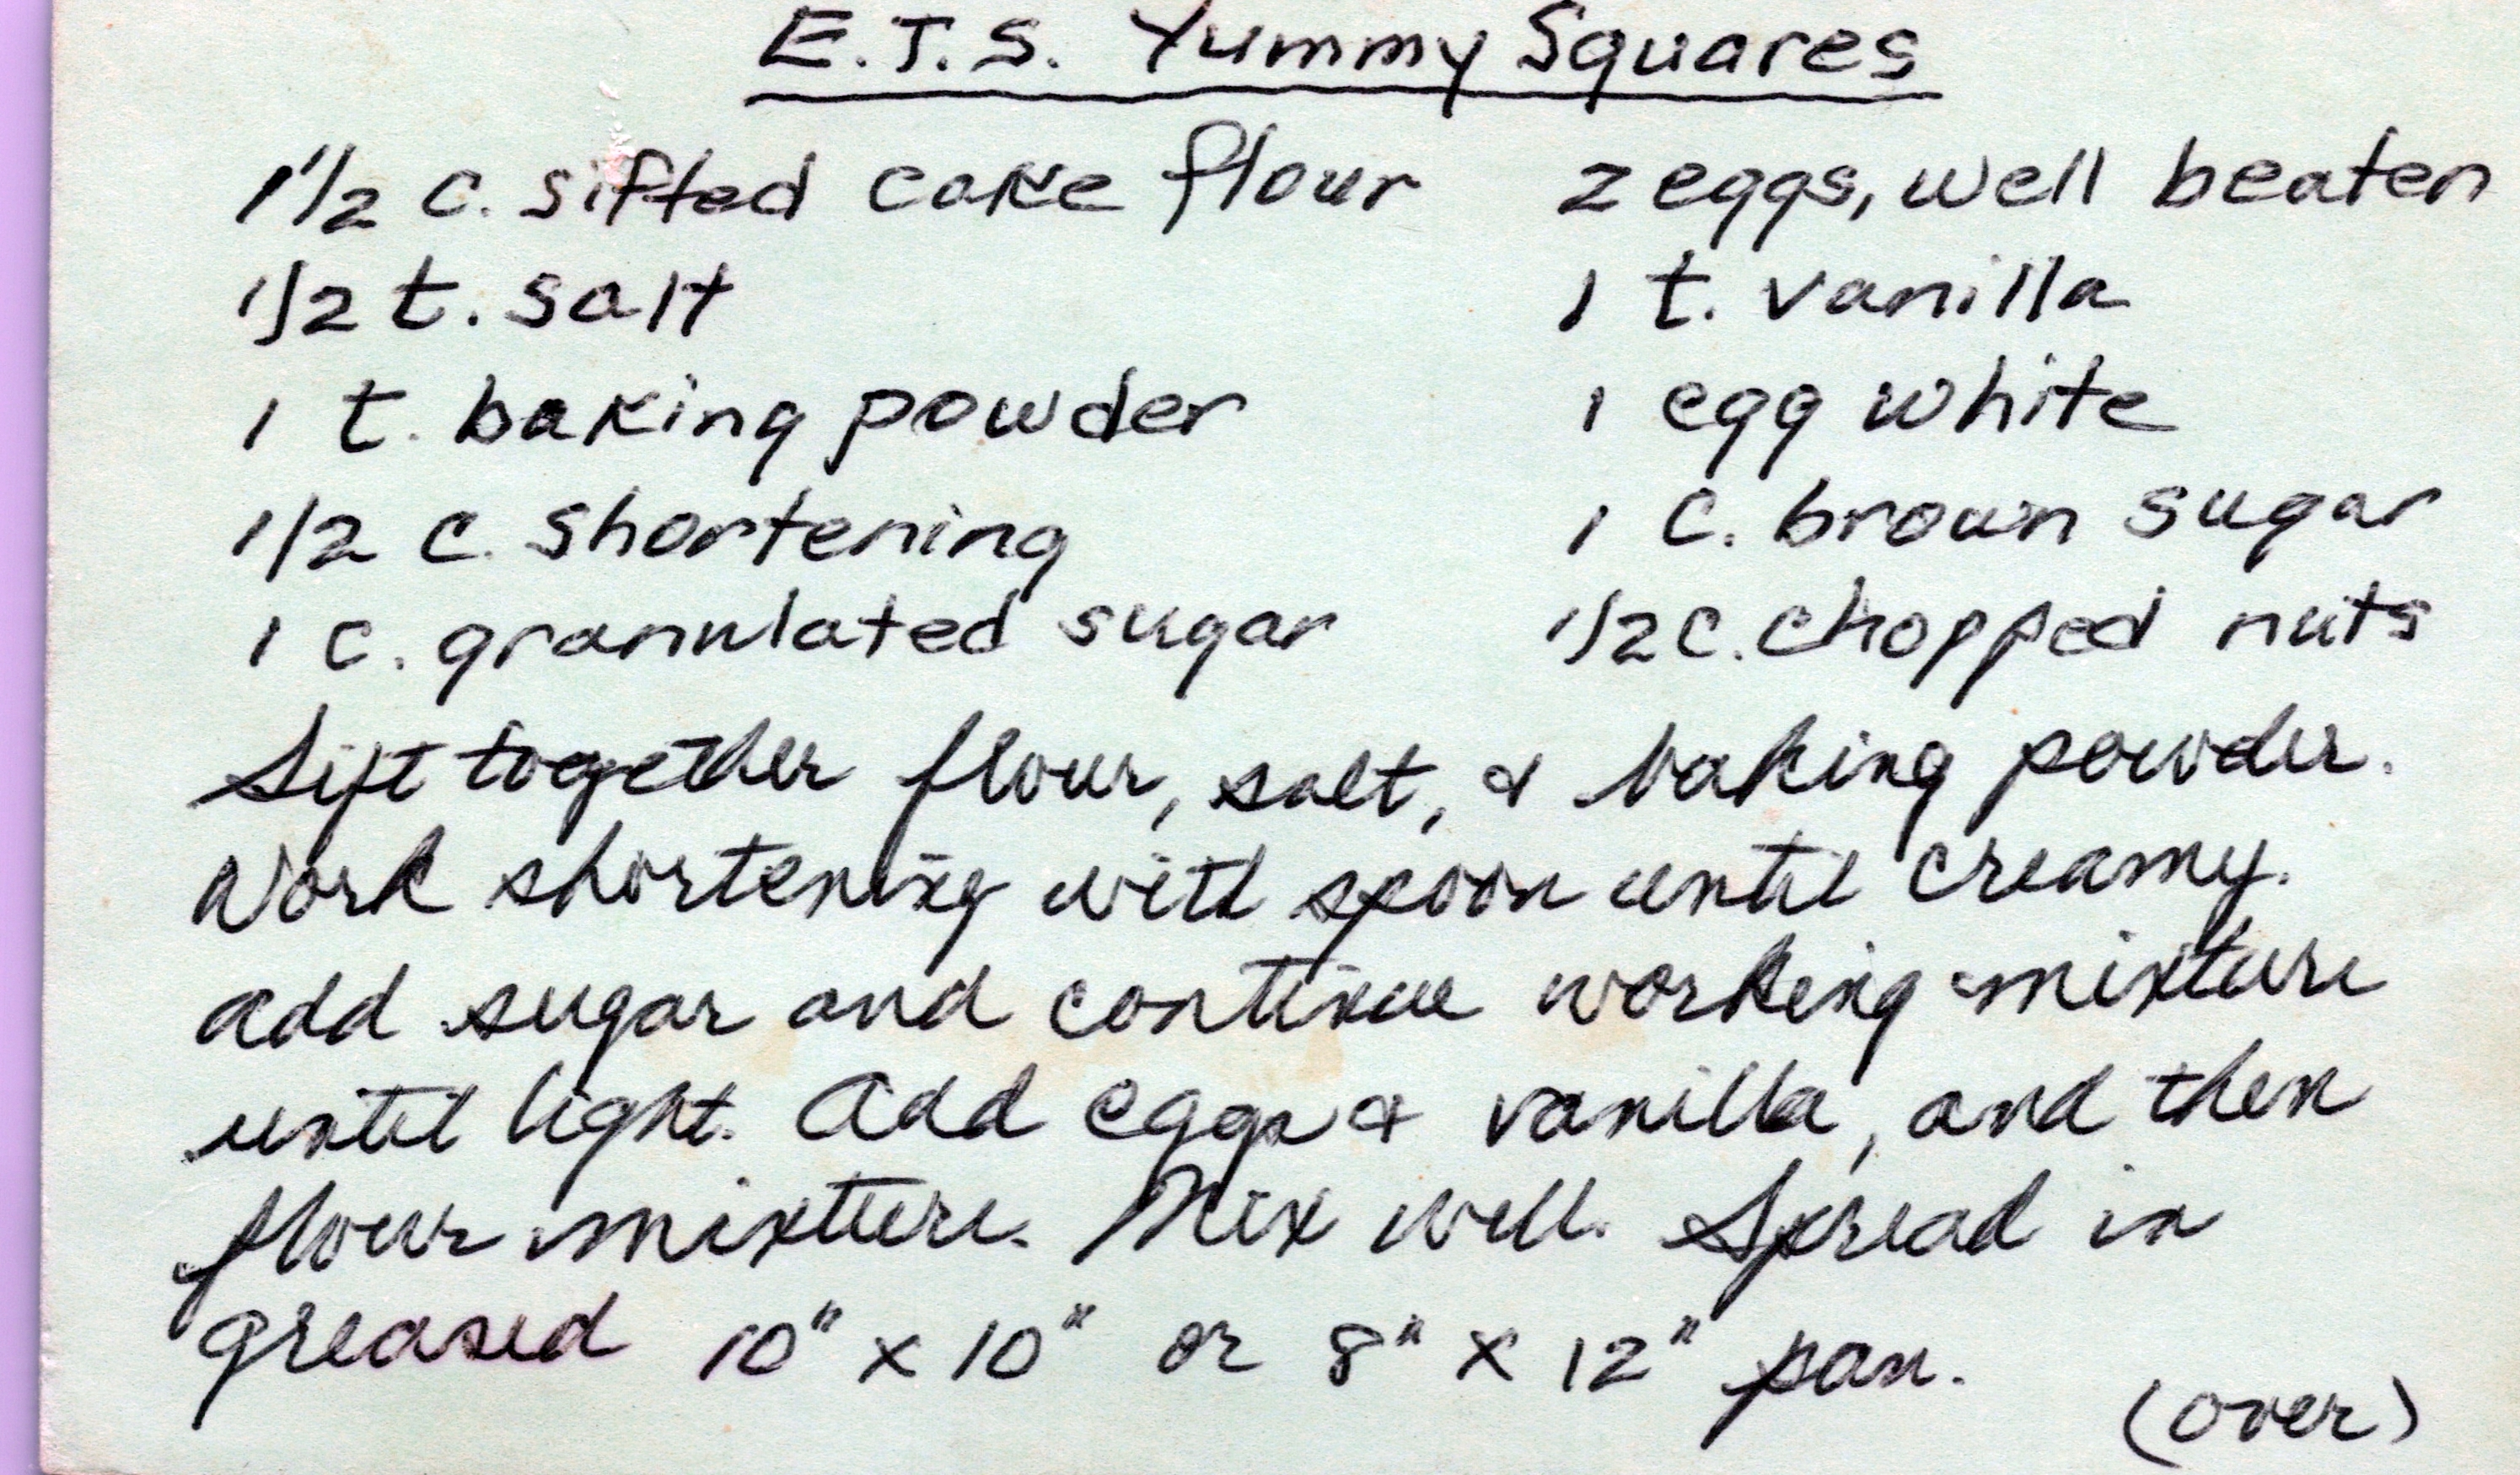 E.T.S. Yummy Squares
1 1/2 c. sifted cake flour
1/2 t. salt
1 t. baking powder
1/2 c. shortening
1 c. granulated sugar
2 eggs, well beaten
1 t. vanilla
1 egg white
1 c. brown sugar
1/2 c. chopped nuts
Sift together flour, salt, & baking powder.
Work shortening with spoon until creamy.
add sugar and continue working mixture
until light. Add eggs & vanilla, and then
flour mixture. Mix well. Spread in
greased 10" x 10" or 8" x 12" pan.
(over)